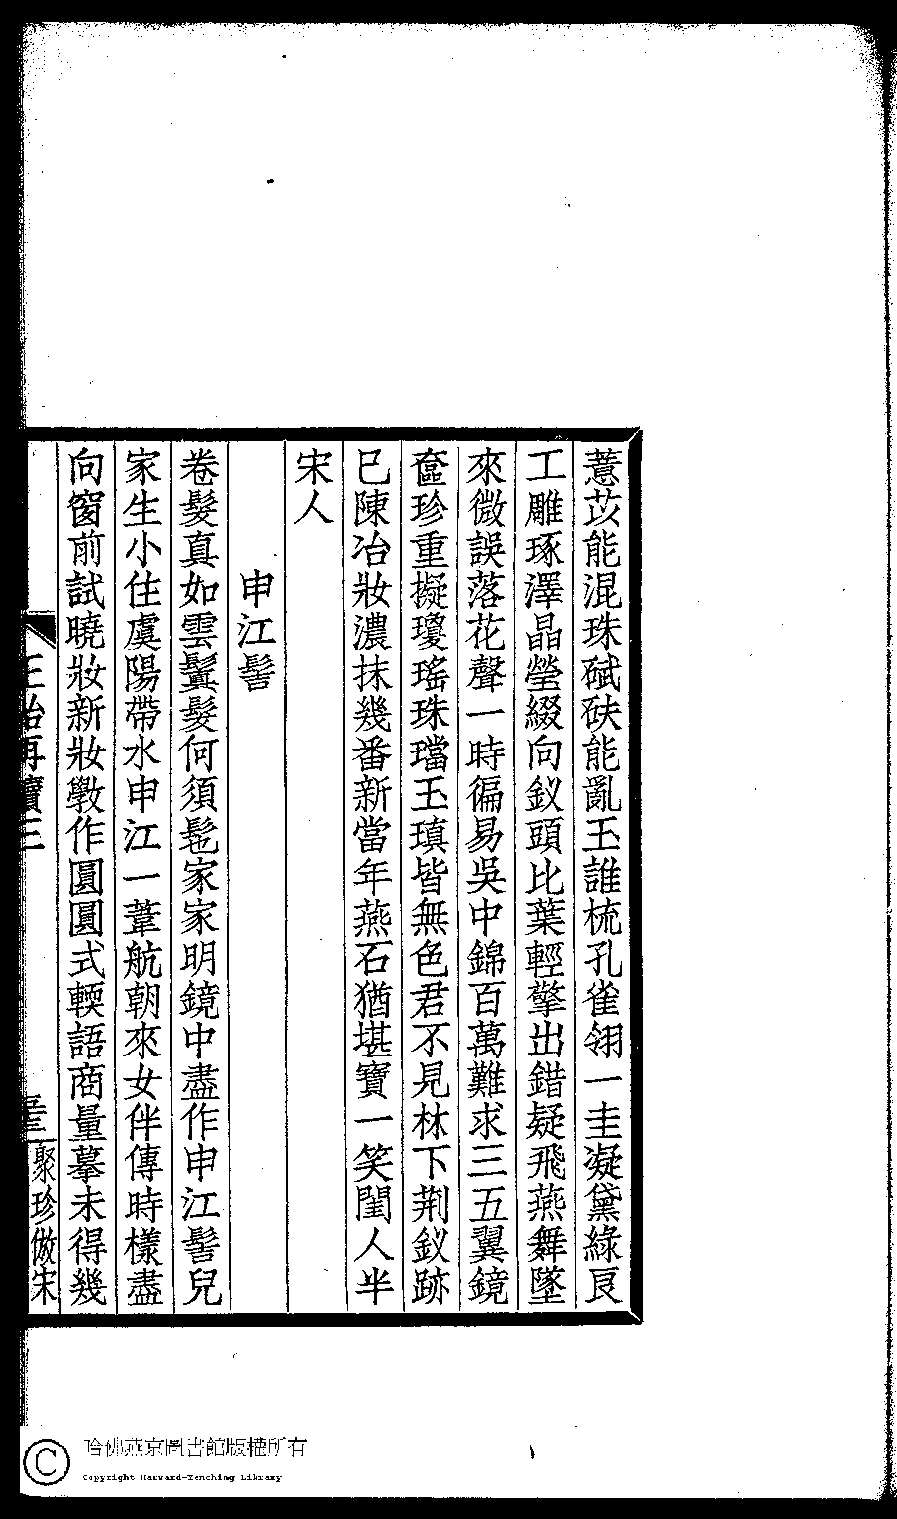 薏苡能混珠碔砆能亂玉誰梳孔雀翎一圭凝黛綠良
工雕琢澤晶瑩綴向釵頭比葉輕擎出錯疑飛燕舞墜
來微誤落花聲一時徧易吳中錦百萬難求三五翼鏡
奩珍重擬瓊瑤珠璫玉瑱皆無色君不見林下荆釵跡
已陳冶妝濃抹幾番新當年燕石猶堪寶一笑閨人半
宋人
申江髻
卷髮真如雲鬒髮何須髢家家明鏡中盡作申江髻兒
家生小住虞陽帶水申江一葦航朝來女伴傳時樣盡
向窗前試曉妝新妝斆作圓圓式輭語商量摹未得幾
聚珍倣宋
哈佛燕京圖書館版權所有
Copyright Harvard-Yenching Library